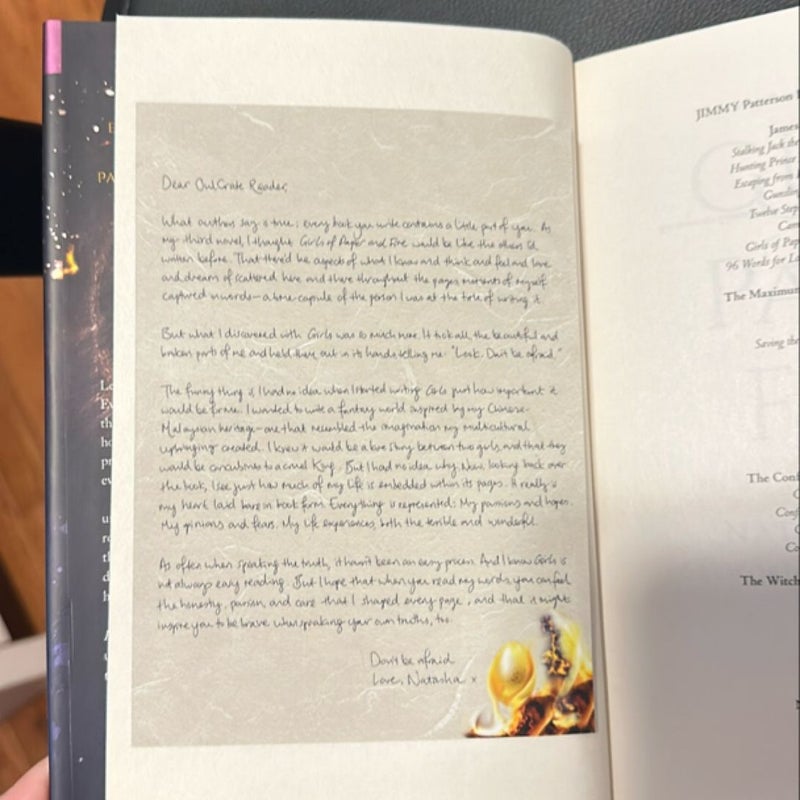 E
PA
Dear OwlCrate Reader,
What authors say is true: every book you write contains a little part of you. As
my third novel, I thought Girls of Paper and Fire would be like the others I'd
written before. That there'd be aspects of what I know and think and feel and love
and dream of scattered here and there throughout the pages, moments of myself
captured in words – a time-capsule of the person I was at the time of writing it.
But what I discovered with Girls was so much more. It took all the beautiful and
broken parts of me and held them out in its hands, telling me: "Look. Don't be afraid."
The funny thing is I had no idea when I started writing Girls just how important it
would be for me. I wanted to write a fantasy world inspired by my Chinese-
Malaysian heritage – one that resembled the imagination my multicultural
upbringing created. I knew it would be a love story between two girls, and that they
would be concubines to a cruel King. But I had no idea why. Now, looking back over
the book, I see just how much of my life is embedded within its pages. It really is
my heart laid bare in book form. Everything is represented: My passions and hopes.
My opinions and fears. My life experiences, both the terrible and wonderful.
As often when speaking the truth, it hasn't been an easy process. And I know Girls is
not always easy reading. But I hope that when you read my words, you can feel
the honesty, passion, and care that I shaped every page, and that it might
inspire you to be brave when speaking your own truths, too.
Don't be afraid.
Love, Natasha x
JIMMY Patterson
James
Stalking Jack the
Hunting Prince
Escaping from
Gunslin
Twelve Step
Cam
Girls of Pap
96 Words for Lo
The Maximum
Saving the
The Conf
Conf
Co
The Witch